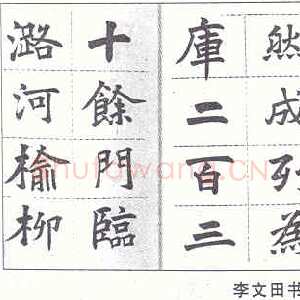 然成列為
庫二百三
十餘門臨
潞河榆柳
shufawang.CN
李文田书